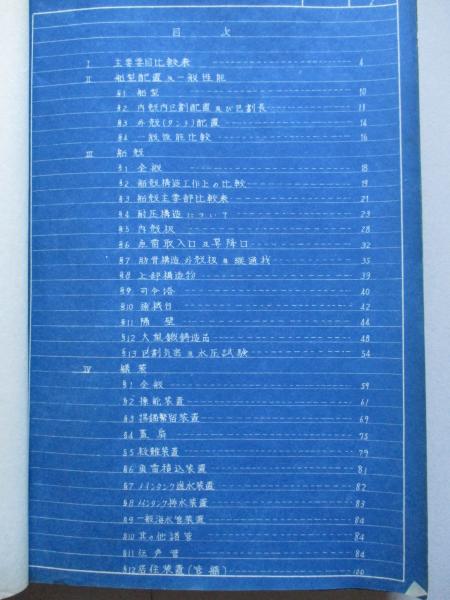 目 次
I 主要要目比較表 4
II 船型配置及一般性能
§1 船型 10
§2 内殻内区劃配置及び区劃長 13
§3 外殻(タンク)配置 14
§4 一般性能比較 16
III 船殻
§1 全般 18
§2 船殻構造工作上の比較 19
§3 船殻主要部比較表 21
§4 耐圧構造について 23
§5 内殻板 28
§6 魚雷取入口及昇降口 32
§7 肋骨構造外殻板及縦通材 35
§8 上部構造物 39
§9 司令塔 40
§10 42
§11 隔壁 44
§12 大型鍛鋳造品 48
§13 区劃気密及水圧試験 54
IV 艤装
§1 全般 59
§2 操舵装置 61
§3 揚錨繋留装置 69
§4 蓋扉 75
§5 救難装置 79
§6 魚雷積込装置 81
§7 メインタンク進水装置 82
§8 メインタンク排水装置 83
§9 一般海水管装置 84
§10 其の他諸管 84
§11 伝声管 84
§12 居住装置 100